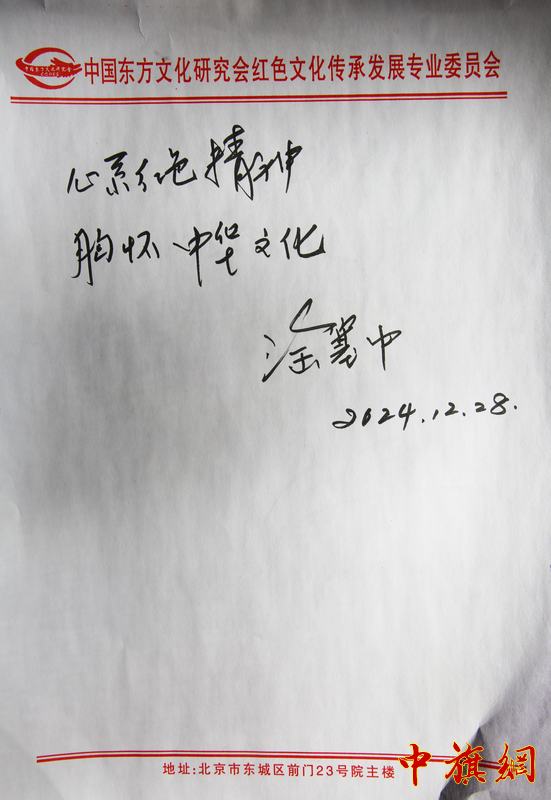 中国东方文化研究会红色文化传承发展专业委员会
心系红色精神
胸怀中华文化
2024.12.28.
地址:北京市东城区前门23号院主楼
中旗網